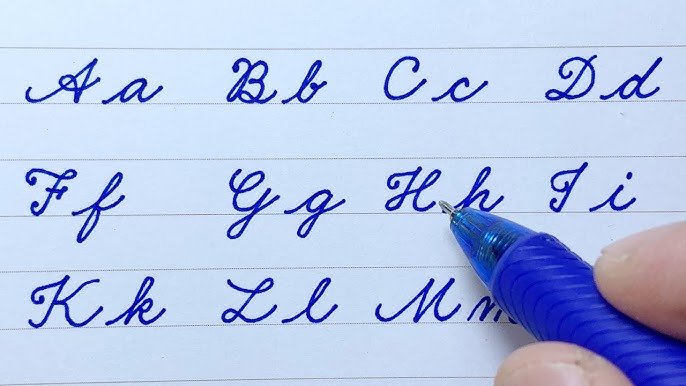 A a B b C c D d
F f G g H h I i
K k L l M m